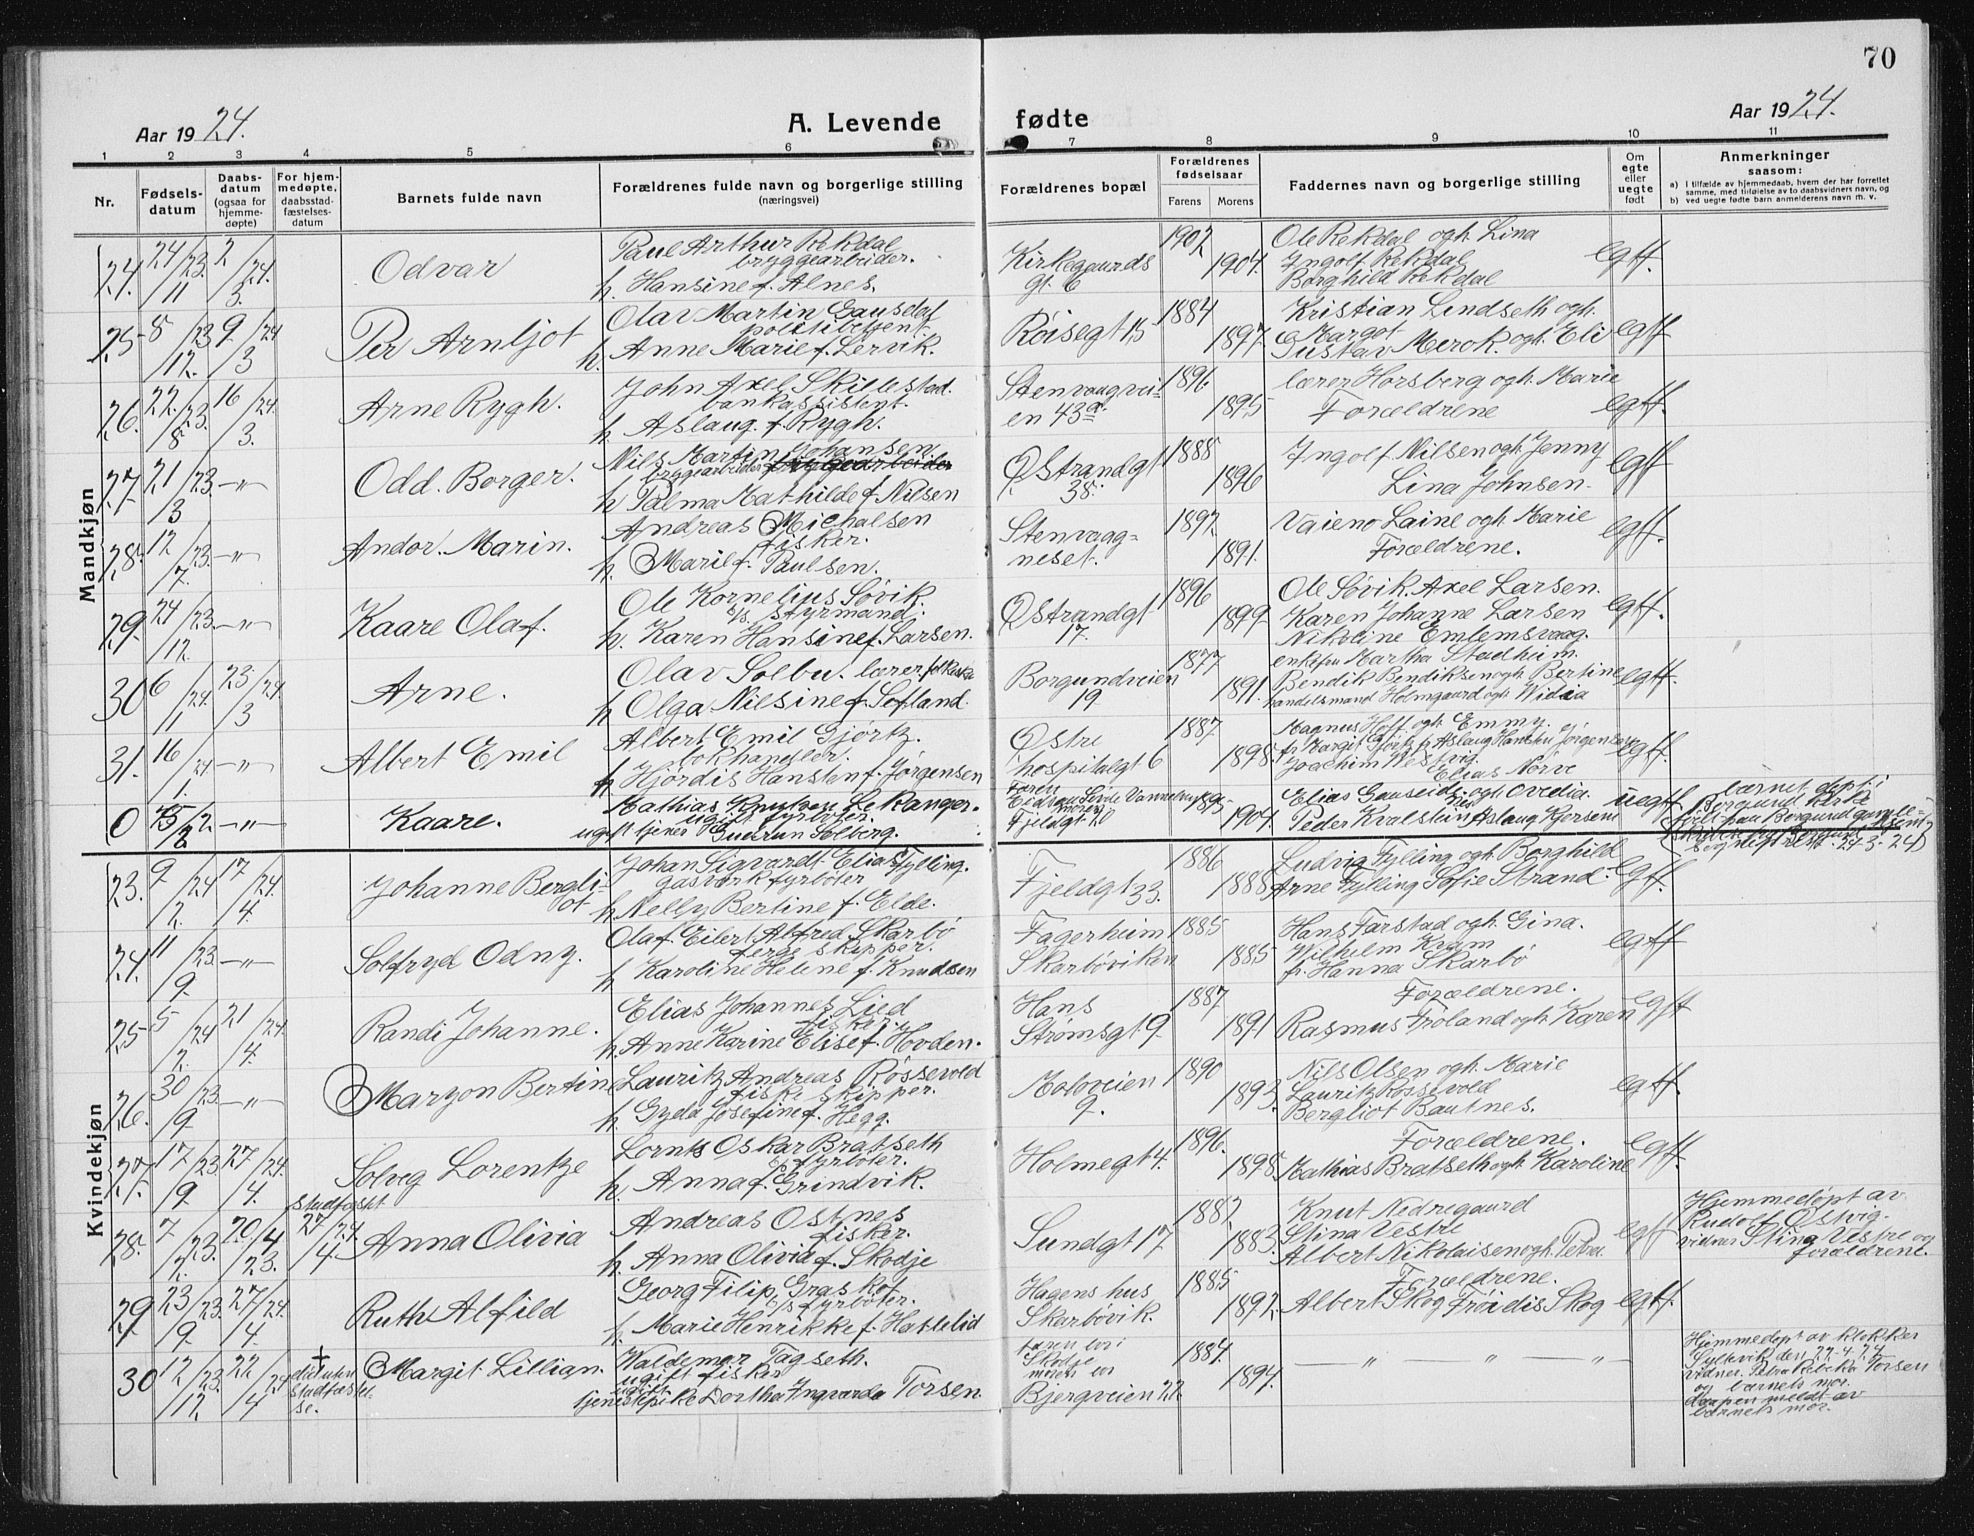 70
Aar 1924.
A. Levende fødte
Aar 1924.
1 2 3 4 5 6 7 8 9 10 11
Nr.
Fødsels-
datum
Daabs-
datum
(ogsaa for
hjemme-
døpte)
For hjem-
medøpte,
daabsstad-
fæstelses-
datum
Barnets fulde navn
Forældrenes fulde navn og borgerlige stilling
(næringsvei)
Forældrenes bopæl
Forældrenes
fødselsaar
Farens Morens
Faddernes navn og borgerlige stilling
Om
egte
eller
uegte
født
Anmerkninger
saasom:
a) i tilfælde av hjemmedaab, hvem der har forrettet
samme, med tilføielse av to daabsvidners navn, og
b) ved uegte fødte barn anmelderens navn m. v.
Mandkjøn
24. 24/11 23. 2/3. 24.
Odvar
Paul Arthur Rekdal
bryggearbeider.
h. Hansine f. Alnes.
Kirkegaards
gt. 6
1902 1904.
Ole Rekdal og h. Lina
Ingolf Rekdal
Borghild Rekdal
egtf.
25 8/12. 23 9/3 24
Per Arnljot
Olav Martin Gausdal
politibetjent
h. Anne Marie f. Lervik.
Røisegt 15
1884 1897.
Kristian Lindseth og h.
Margot
Gustav Merok. og h. Eli
egtf
26. 22/8 23. 16/3. 24.
Arne Rygh.
John Axel Skillestad.
bankassistent.
h Aslaug f. Rygh.
Stenvaagvei-
en 43a.
1896 1895
lærer Horsberg og h. Marie
Forældrene
egtf.
27. 21/3 23. -"-
Odd. Borger.
Nils Martin Johansen.
bryggearbeider
h Palma Mathilde f. Nilsen
Ø Strandgt
38.
1888 1896
Ingolf Nilsen og h. Jenny
Lina Johnsen.
egtf
28. 12/7. 23. -"-
Andor. Marin.
Andreas Michalsen
fisker.
h. Marie f. Paulsen.
Stenvaag=
neset.
1892. 1891.
Vaieno Laine og h. Marie
Forældrene.
egtf.
29. 24/12. 23. -"-
Kaare Olaf.
Ole Kornelius Søvik.
s/s. styrmand.
h. Karen Hansine f. Larsen.
Ø Strandgt
17.
1896 1899
Ole Søvik. Axel Larsen.
Karen Johanne Larsen
Nikoline Emlemsvaag.
egtf.
30 6/1 24. 23/3 24.
Arne.
Olav Solbu. lærer
h Olga Nilsine f. Sefland.
Borgundveien
19.
1877 1891.
enkefru Martha Stadheim.
Bendik Bendiksen og h. Bertine
handelsmand Holmgaard og h.
egtf.
31. 16/1. 24. -"-
Albert Emil
Albert Emil Gjørtz.
bokhandler.
h Hjørdis Hansten f. Jørgensen
Østre
hospitalgt 6
1887 1898
Magnus Hoff. og h. Emmy.
fr Margit Gjørtz fr. Aslaug Hansten Jørgensen
Joachim Westvig.
Elias Norve
egtf.
0 -"-
Kaare.
Mathias Knutsen Lekanger.
ugift fyrbøter.
ugift tjener Gudrun Solberg.
Faren
moren
Fjeldgt 20
1904.
Elias Gauseide. og h. Ovedia.
Peder Kvalsund Aslaug Kjersem
uegtf
barnet døpt i
Borgund kirke
Kvindekjøn
23. 9/2. 24 17/4. 24.
Johanne Bergli-
ot
Johan Sigvardt Elias Fylling.
gasverk fyrbøter
h Nelly Bertine f. Elde.
Fjeldgt 33.
1886 1888
Ludvig Fylling og h. Borghild
Arne Fylling Sofie Strand.
egtf.
24. 11/9. 23. -"-
Solfryd Odny.
Olaf. Eilert Alfred Skarbø
ferge skipper.
h Karoline Helene f. Knudsen
Fagerheim
Skarbøviken
1885 1885
Hans Farstad og h. Gina.
Wilhelm
fr. Hanna Skarbø
egtf
25 5/2. 24 21/4. 24.
Randi Johanne.
Elias Johannes Lied
fisker.
h. Anne Karine Elise f. Hovden.
Hans
Strømsgt 9.
1887 1891
Forældrene.
Rasmus Froland og h. Karen
egtf
26. 30/9 23. -"-
Maryon Bertine
Lauritz Andreas Røssevold
fiske skipper.
h. Gyda Josefine f. Hegg.
Moloveien
9.
1890 1893.
Nils Olsen og h. Marie
Lauritz Rossevold
Bergliot Bautnes.
egtf.
27. 17/9. 23 27/4. 24.
Solveg Lorentze
Lornts Oskar Bratseth
fyrbøter.
h. Anna f. Grindvik.
Holmegt 4.
1896. 1898.
Forældrene.
Mathias Bratseth og h. Karoline
egtf.
28. 7/2. 23. 20/4 23.
stadfæst
27/4. 24
Anna Olivia
Andreas Ostnes
fisker.
h. Anna Olivia f. Skodje
Sundgt 17
1882 1883.
Knut Nedregaard
Stina Vestre
Albert Nikolaisen og h. Petra
egtf
Hjemmedøpt av
Rudolf Østvig.
vidner Stina Vestre og
forældrene.
29 23/9 23. 27/4. 24.
Ruth Alfild
Georg Filip Graskot.
s/s fyrbøter.
h. Marie Henrikke f. Hatlelid
Hagens hus
Skarbøvik.
1885 1892.
Forældrene.
Albert Skog Frøidis Skog
egtf.
30 12/12. 23. 22/4 24
+
død uten
stadfæstel
se.
Margit. Lillian.
Waldemar Tagseth.
ugift fisker
ugift
tjenestepike Dorthea Ingvarda Torsen.
faren bor i
Skodje
moren bor
Bjergveien 22.
1884. 1894.
-"- -"-
Hjemmedøpt av klokker
Syltevik den 22-4-24
vidner. Petra Rebekka Torsen
og barnets mor.
daapen meldt av
barnets mor.